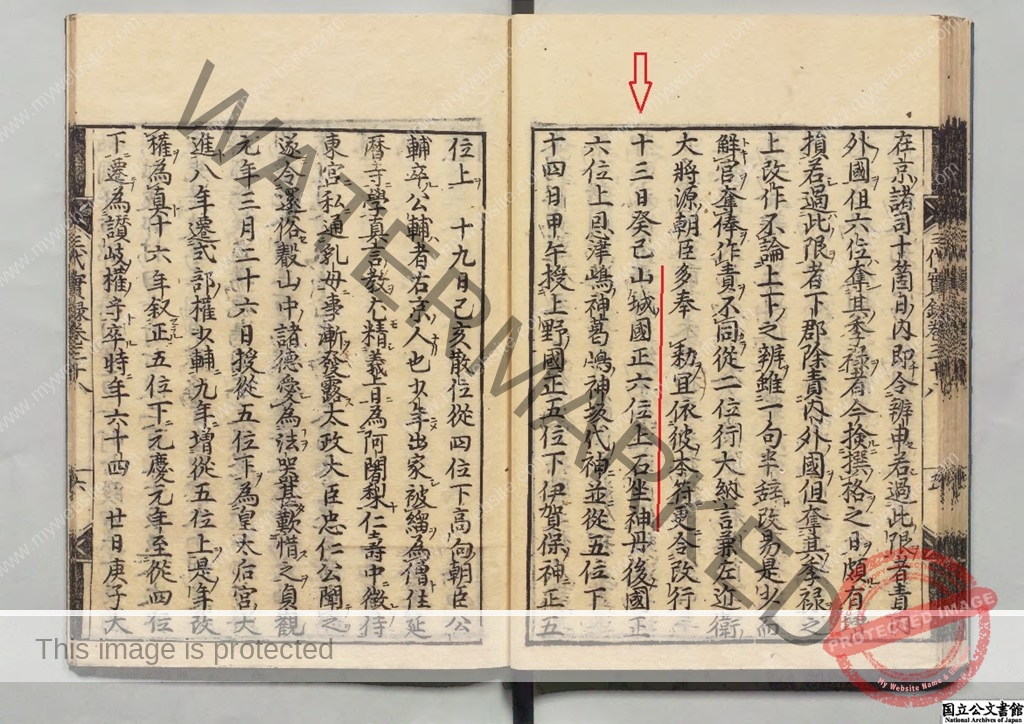 在京諸司十箇日內即令辨申若過此限者責
外國但六位奪其季祿者今撿撰格之日頗有
損若過此限者下郡除責內外國但奪其季祿之
上改作不論上下之辨雖一句半辭改易是少而
解官奪俸作責不同從二位行大納言兼左近衛
大將源朝臣多奉 勅宜依彼本符更令改行
十三日癸巳山城國正六位上石坐神丹後國正
六位上恩津嶋神葛嶋神坂代神並從五位下
十四日甲午授上野國正五位下伊賀保神正五
三代實錄卷三十八
位上 十九日己亥散位從四位下高向朝臣公
輔卒公輔者右京人也少年出家被緇為僧住延
曆寺學真言教尤精義旨為阿闍梨仁壽中徵侍
東宮私通乳母事漸發露太政大臣忠仁公聞之
遂令還俗叡山中諸德愛為法器甚歎惜之貞觀
元年三月二十六日授從五位下為皇太后宮大
進八年遷式部權少輔九年增從五位上是年改
權為真十六年叙正五位下元慶元年至從四位
下遷為讃岐權守卒時年六十四 廿日庚子大
三代實錄卷三十八
WATERMARKED
This image is protected
PROTECTED IMAGE
My Website Name &
www.mywebsite.com
国立公文書館
National Archives of Japan